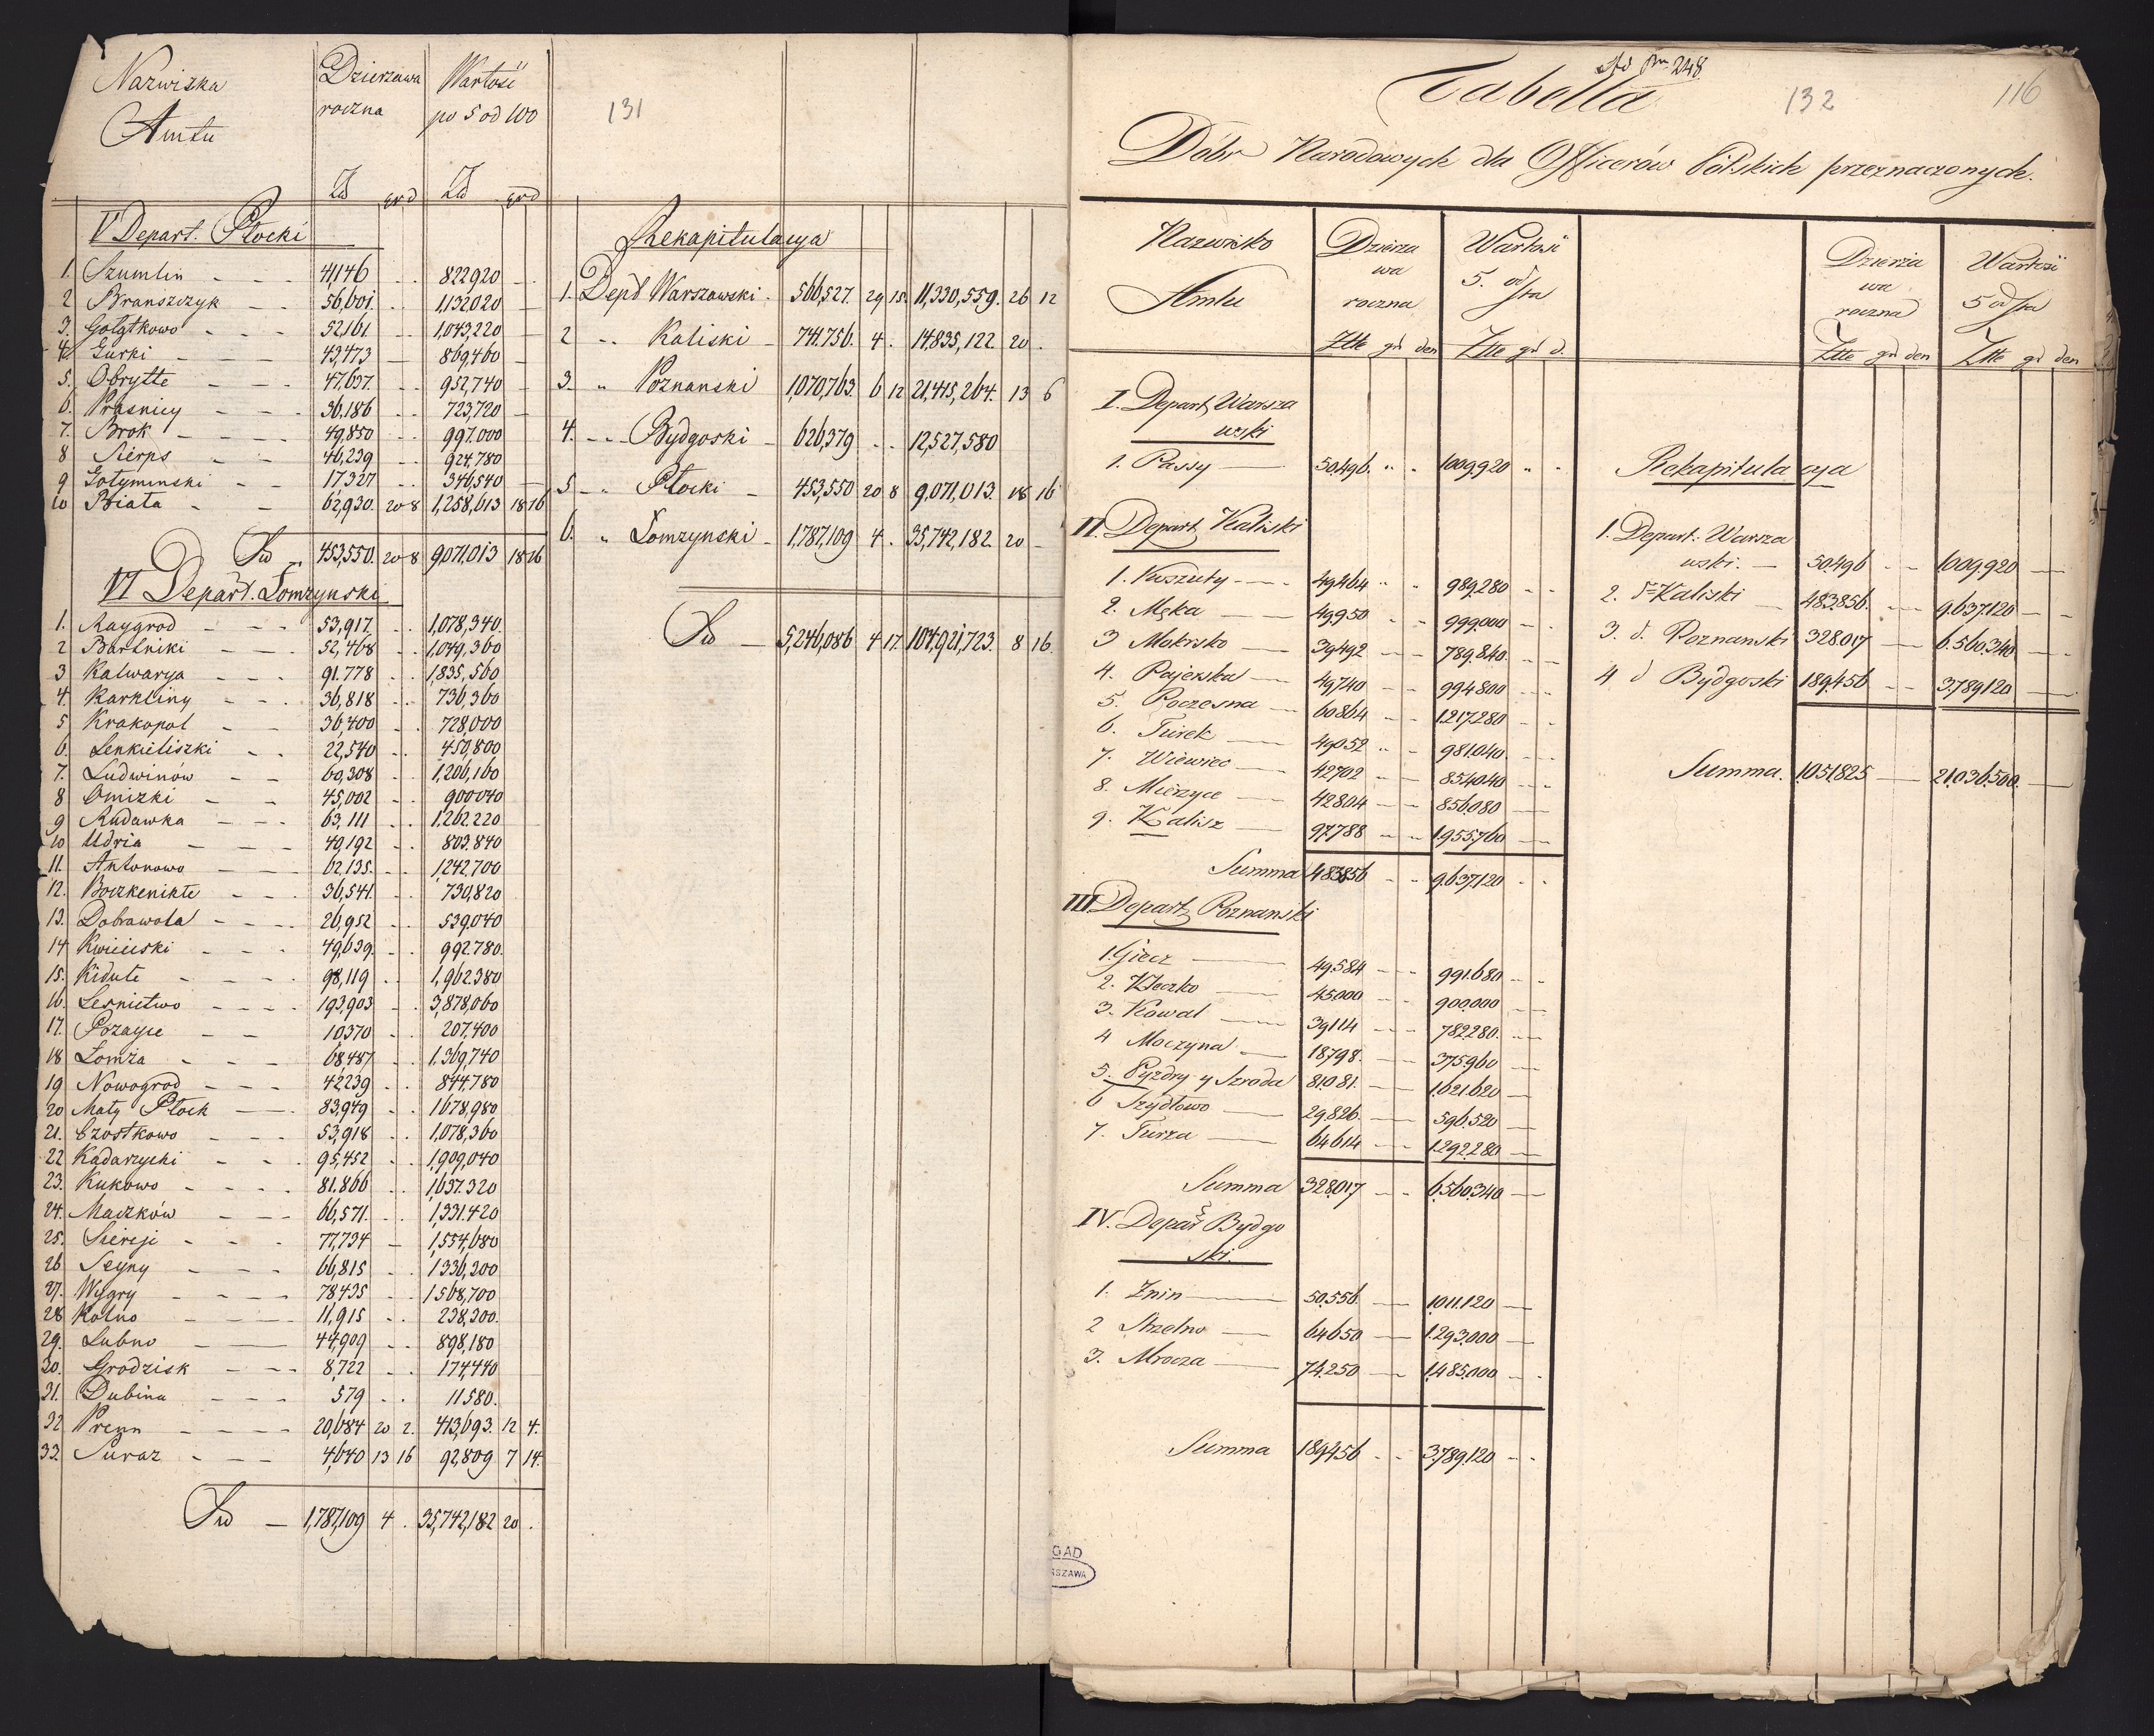 Nazwiska Dzierzawa Wartość
roczna po 5 od 100
Amtu
131
Zł grd Zł grd
V Depart. Płocki
1. Szumlin - - - 41,146 .. 822,920 -
2 Branszczyk - - 56,601. .. 1,132,020 -
3. Gołątkowo - - - 52,161 .. 1,043,220 -
4. Gurki - - - 43,473 - 869,460 -
5. Obrytte - - - 47,637. .. 952,740 -
6. Prasnicy - - - 36,186 .. 723,720 -
7. Brok - - - - 49,850 .. 997,000 -
8 Sierps - - 46,239 .. 924,780
9 Gotyminski - - 17,327 .. 346,540 -
10 Biała - - 62,930. 20 8 1,258,613 18 16
Su - 453,550. 20 8 9,071,013 18 16
VI Depart. Łomzynski
1. Raygrod - - - 53,917. .. 1,078,340.
2 Bartniki - - - 52,468 .. 1,049,360
3 Kalwarya - - - 91.778 .. 1,835,560
4. Karkliny - - - 36,818 .. 736,360
5 Krakopol - - 36,400 .. 728,000
6. Lenkieliszki - - 22,540 .. 450,800
7. Ludwinów - - 60,308 .. 1,206,160
8 Omizki - - 45,002 .. 900040
9 Rudawka - - - 63,111 .. 1,262.220
10 Udria - - - 40,192 .. 803.840
11. Antonowo - - - 62,135. .. 1,242,700
12. Boczkenikte - - 36,541. .. 730,820
13. Dobrawola - - - 26,952 .. 539,040
14 Kwieciski - - - 49,639. .. 992.780.
15. Kidule - - - 98,119 .. 1,962.380
16. Lesnictwo - - - - 193,903 .. 3,878,060
17. Pozayse - - 10370 .. 207,400
18 Łomża - - - 68,487 .. 1.369,740
19 Nowogrod - - - 42,239 .. 844,780
20 Mały Płock - - 83,949 .. 1678,980
21. Czostkowo - - - 53,918 .. 1,078,360
22 Kadarzyski - - . 95,452 .. 1,909,040
23. Kukowo - - - - 81.866 .. 1,637.320
24. Maczków - - - 66,571. .. 1,331.420
25. Siereji - - - 77,734 - 1,554,680
26 Seyny - - - 66,815 .. 1336,300
27. Wigry - - - - 78435 .. 1568,700
28 Kolno - - - - 11,915 .. 238,300.
29. Lubno - - 44,909 .. 898,180
30. Grodzisk - - - 8,722 .. 174,440
31. Dubina - - - 579 .. 11580.
32 Prenn - - - - 20,684 20 2. 413,693. 12 4.
33. Suraz - - - 4,640 13 16 92,809 7 14.
Su - 1,787,109 4 . 35,742,182 20 .
Rekapitulacya
1. Depd Warszawski - 566,527. 29 15. 11,330,559. 26 12
2 .. Kaliski - 741.756. 4 . 14,835,122 20 .
3. " Poznanski 1,070,763. 6 12 21,415,264. 13 6
4. - .. Bydgoski - 626,379 .. 12,527,580
5 - .. Płocki - 453,550 20 8 9,071,013. 18 16
6. " Łomzynski - 1,787,109 4 . 35,742,182 20 -
Su - 5,246,086 4 17. 104,921,723. 8 16.
248.
Tabella 132 116
Dóbr Narodowych dla Officerów Polskich przeznaczonych.
Nazwisko Dzierza Wartosć
wa 5. od sta
Amtu roczna
Złłe gr den Złłe gr d.
Dzierża Wartość
wa
roczna 5 od sta
Złłe gr den Złłe gr den
I. Depart Warsza
wski
1. Passy - 50.496. " " 1009.920 " "
II. Depart Kaliski
1. Koszuty - - - 49.464 " " 989.280 - -
2. Męka - 49.950 " " 999.000 - -
3 Mokrsko - 39.492 - - 789.840. - -
4. Pajenska - 49,740 - - 994.800 - -
5. Poczesna - 60.864 - - 1.217.280 - -
6. Turek - 49.052 " - 981.040. - -
7. Wiewiec - 42702 - - 854040 - -
8. Mierzyce - 42.804 - - 856.080 -
9. Kalisz - 97.788 - - 1.955.760 -
Summa 483.856 - - 9.637.120 - -
III Depart Poznanski
1. Giecz - 49.584 - - 991.680 - -
2. Kłeczko - 45.000 - - 900.000 -
3. Kowal - 39114 - - 782.280. -
4 Moczyna - 18.798. - 375.960 -
5. Pyzdry y Szroda 81.081. - 1.621.620 -
6 Szydłowo - 29,826. - 596.520 -
7. Turza - 64614 - - 1.292.280 -
Summa 328.017 - - 6.560.340 -
IV. Depart Bydgo
ski.
1. Znin - 50.556. - 1.011.120 -
2 Strzelno - 64650 - 1.293.000 -
3. Mrocza - 74.250 - 1.485.000 - -
Summa 189.456 - - 3.789.120 - -
Rekapitulacya
1. Depart. Warsza
wski. - 50.496 - - 1.009.920 -
2. d Kaliski - 483.856. - 9.637.120 - -
3. d. Poznanski 328.017 - 6.560.340 - -
4 d Bydgoski 189.456 - - 3.789.120 -
Summa. 1.051.825 - 21.036.500. -
GAD
RSZAWA